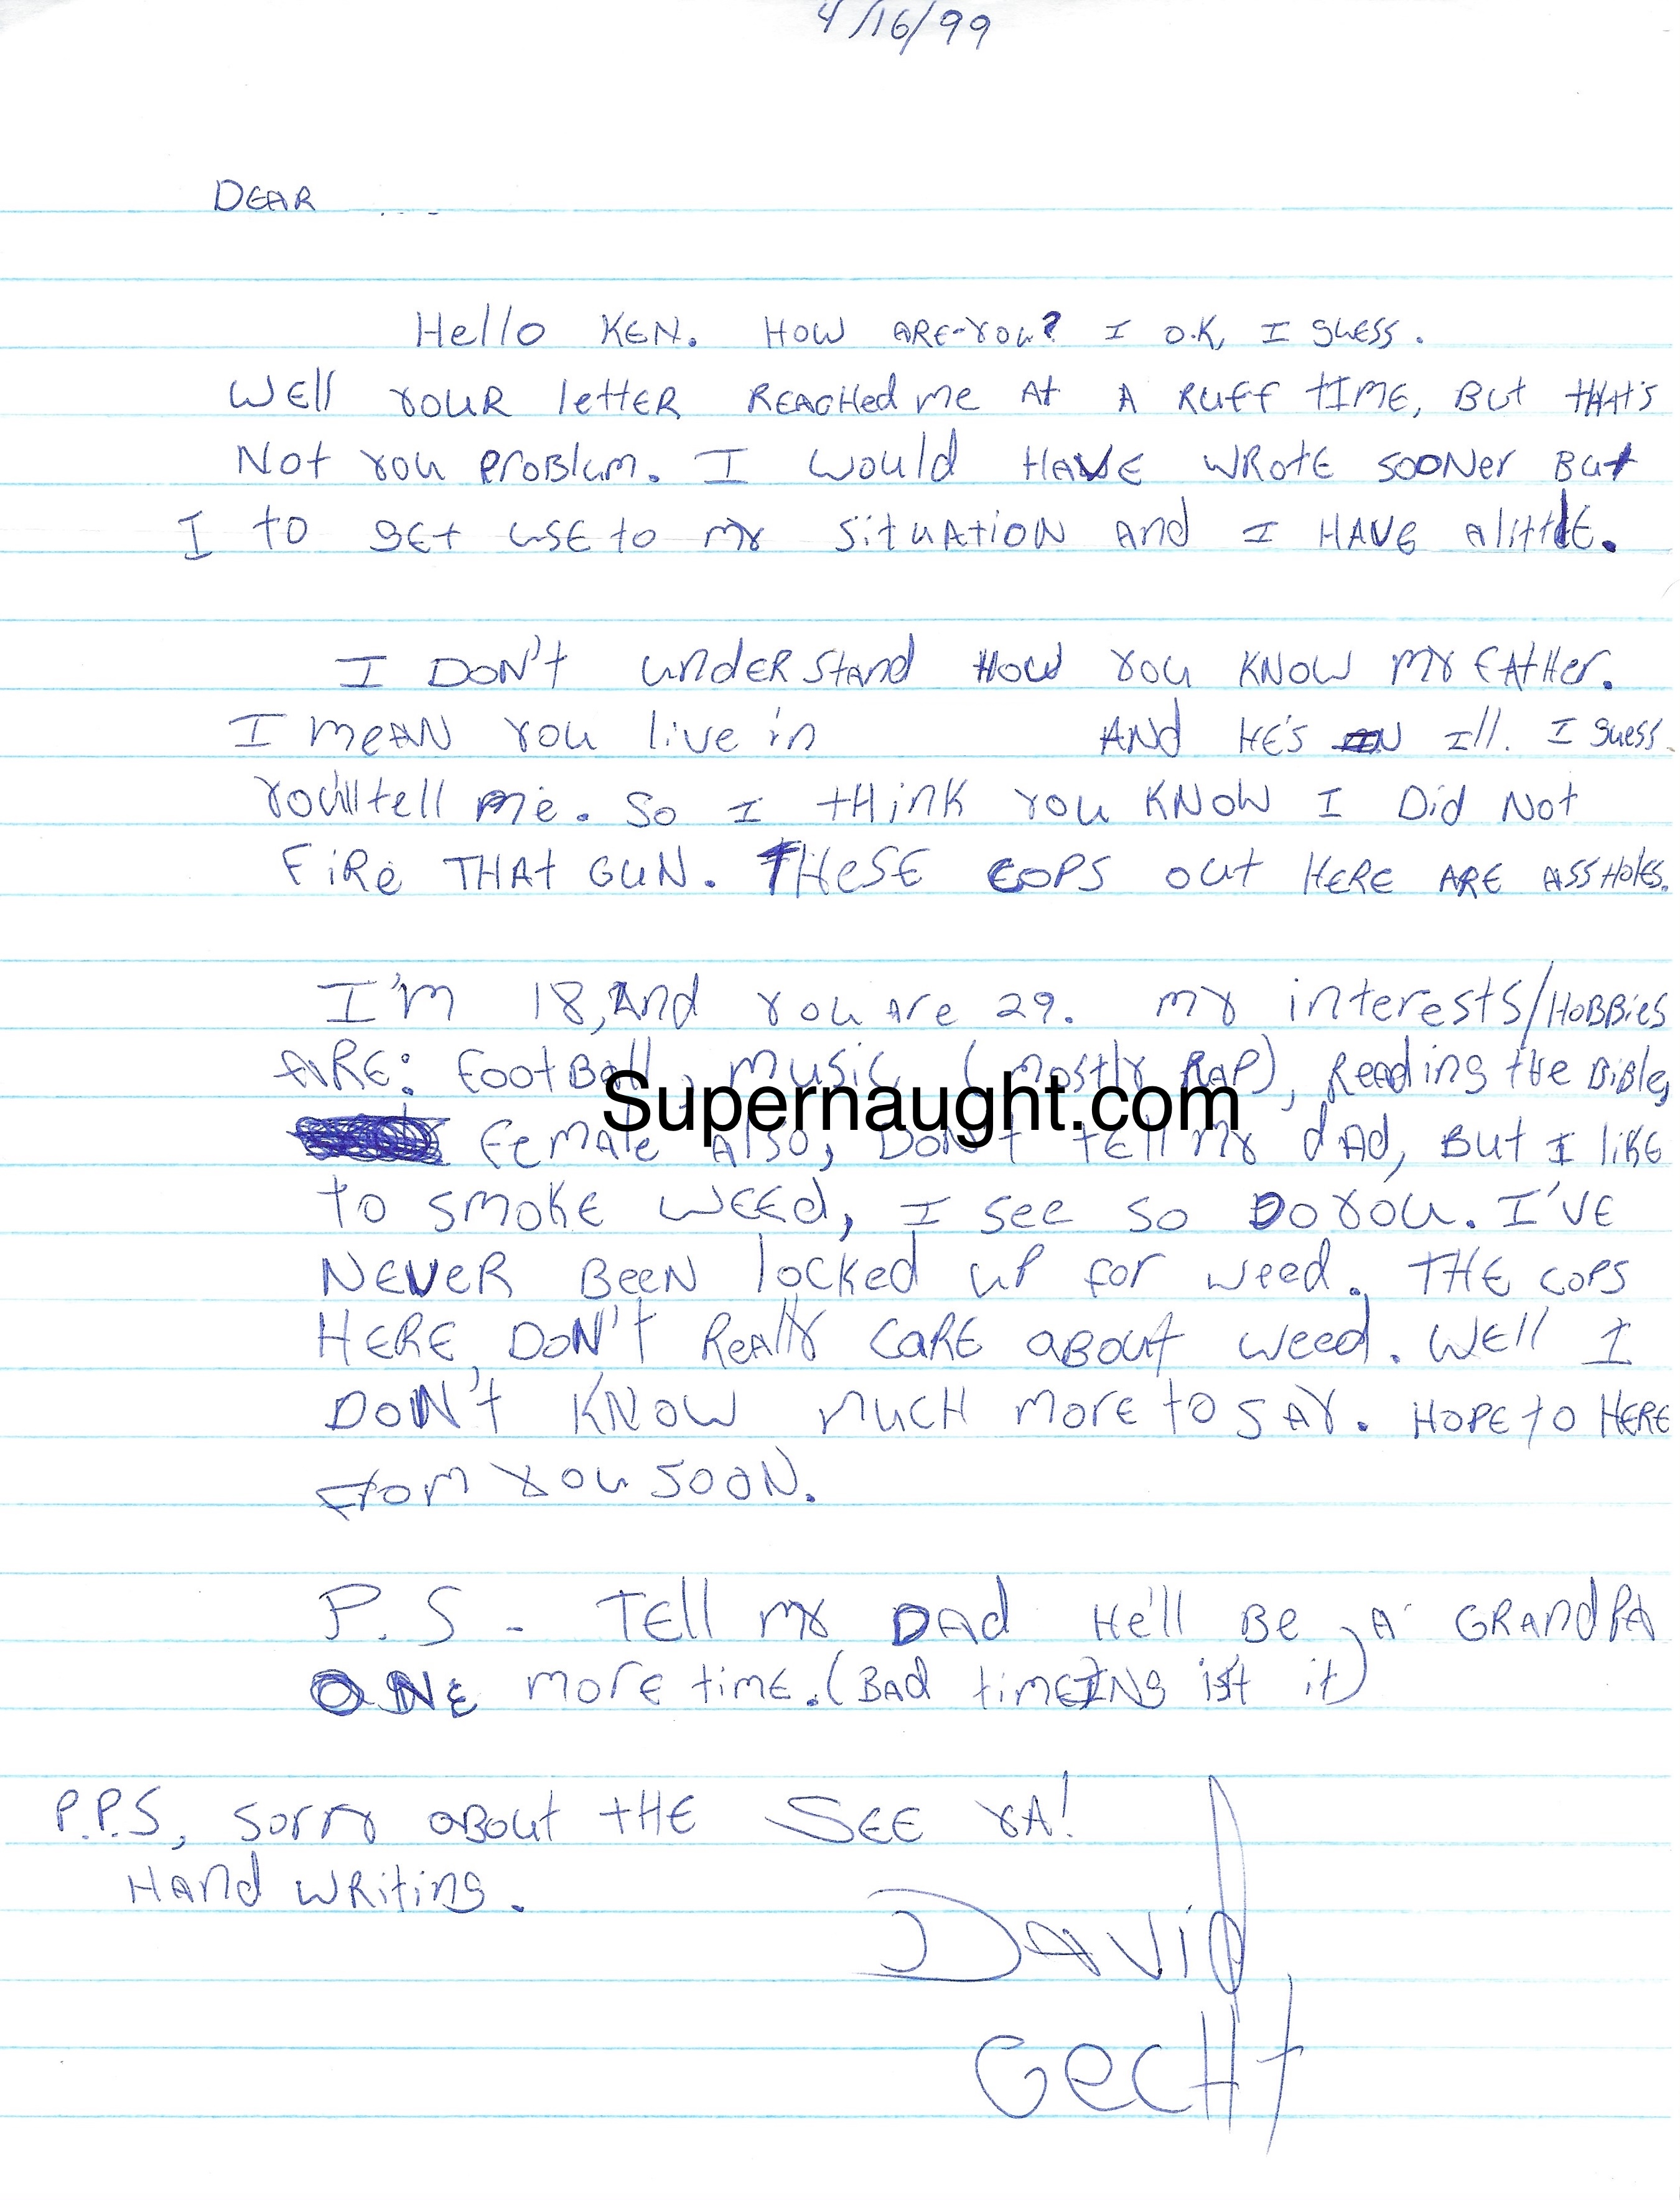 4/16/99
DEAR
Hello KEN. HOW ARE-YOU? I O.K, I guess.
WEll YOUR lettER REACHed me At A RUFF tIME, BUt tHAt's
Not you problum. I would HAVE WROtE SOONer But
I to gEt usE to my situAtioN And I HAVE AlittlE.
I DON't undERstand HOW YOU KNOW MY fAtHer.
I meAN YOU live in AND HE'S IN Ill. I guess
You'll tell me. So I tHinK YOU KNOW I Did Not
FiRe THAt GUN. THESE COPS out HERE ARE ASSHolEs.
I'm 18, And you Are 29. my interests/HoBBies
ARE: FootBall, music (mostly RAP), Reading tHe BiBle,
Supernaught.com
FemAle Also, DON't tEll my dAd, But I likE
to smokE WEEd, I see so Do YOU. I'VE
NEVER BeeN locked up for weed. THE COPS
HERE DON't ReAlly CaRE aBout weed. WEll I
DON't KNOW MUCH MORE to SAY. HOPE to HERE
from YOU SOON.
P.S - TEll my DAd He'll BE A GRANdPA
ONE morE timE. (BAd timEING is't it)
P.P.S, sorry aBout tHE SEE YA!
HAnd WRiting.
DAVID
GecHt